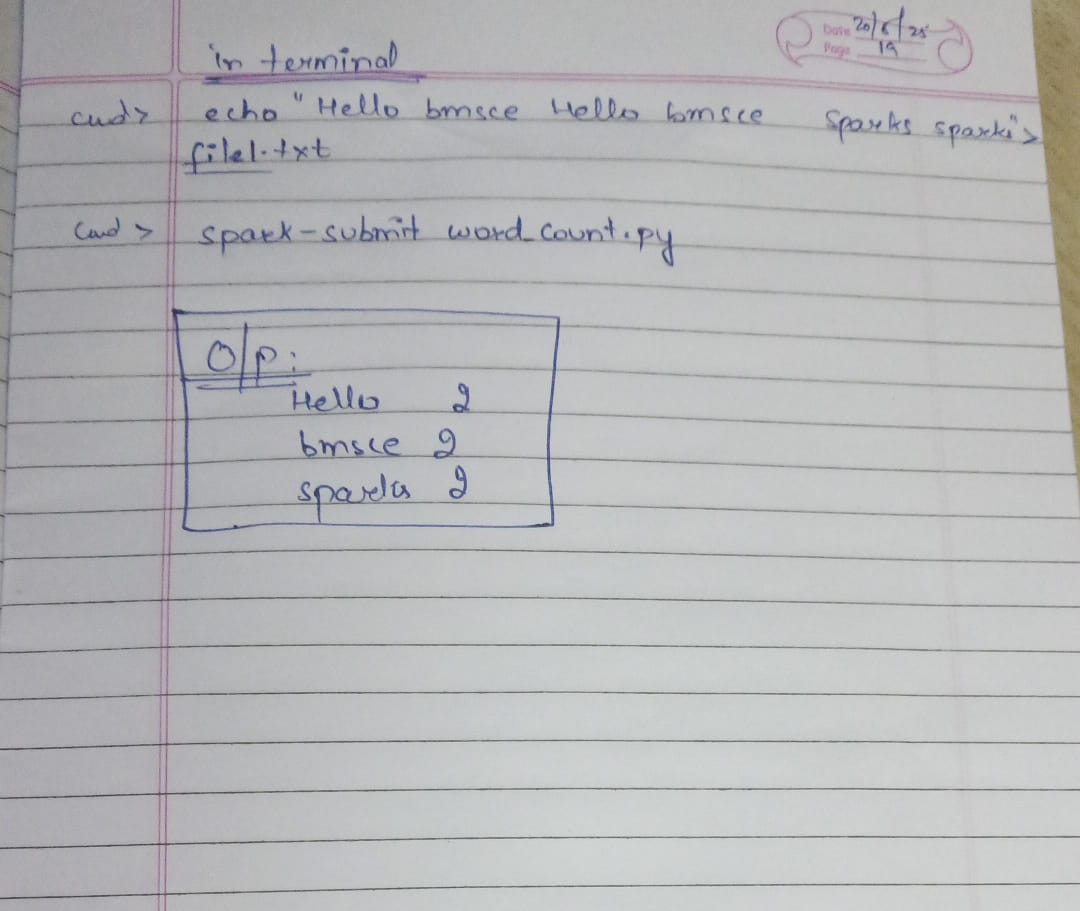 Date 20/5/25
Page 19
in terminal
cmd> echo "Hello bmsce Hello bmsce Sparks sparks">
file1.txt
cmd> spark-submit word_count.py
O/P:
Hello 2
bmsce 2
sparks 2